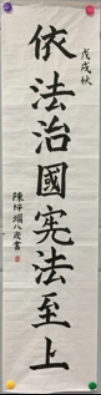 戊戌秋
依法治國宪法至上
陳梓瑞八歲書